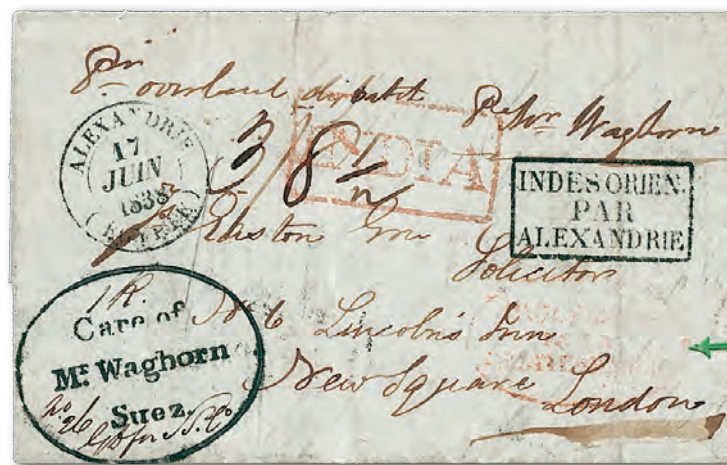 Pr overland dispatch
Pr Mr Waghorn
ALEXANDRIE
17
JUIN
1838
INDIA
3/8½
INDES ORIEN.
PAR
ALEXANDRIE
Easton
Solicitors
No 6 Lincoln's Inn
New Square London
Care of
Mr. Waghorn
Suez